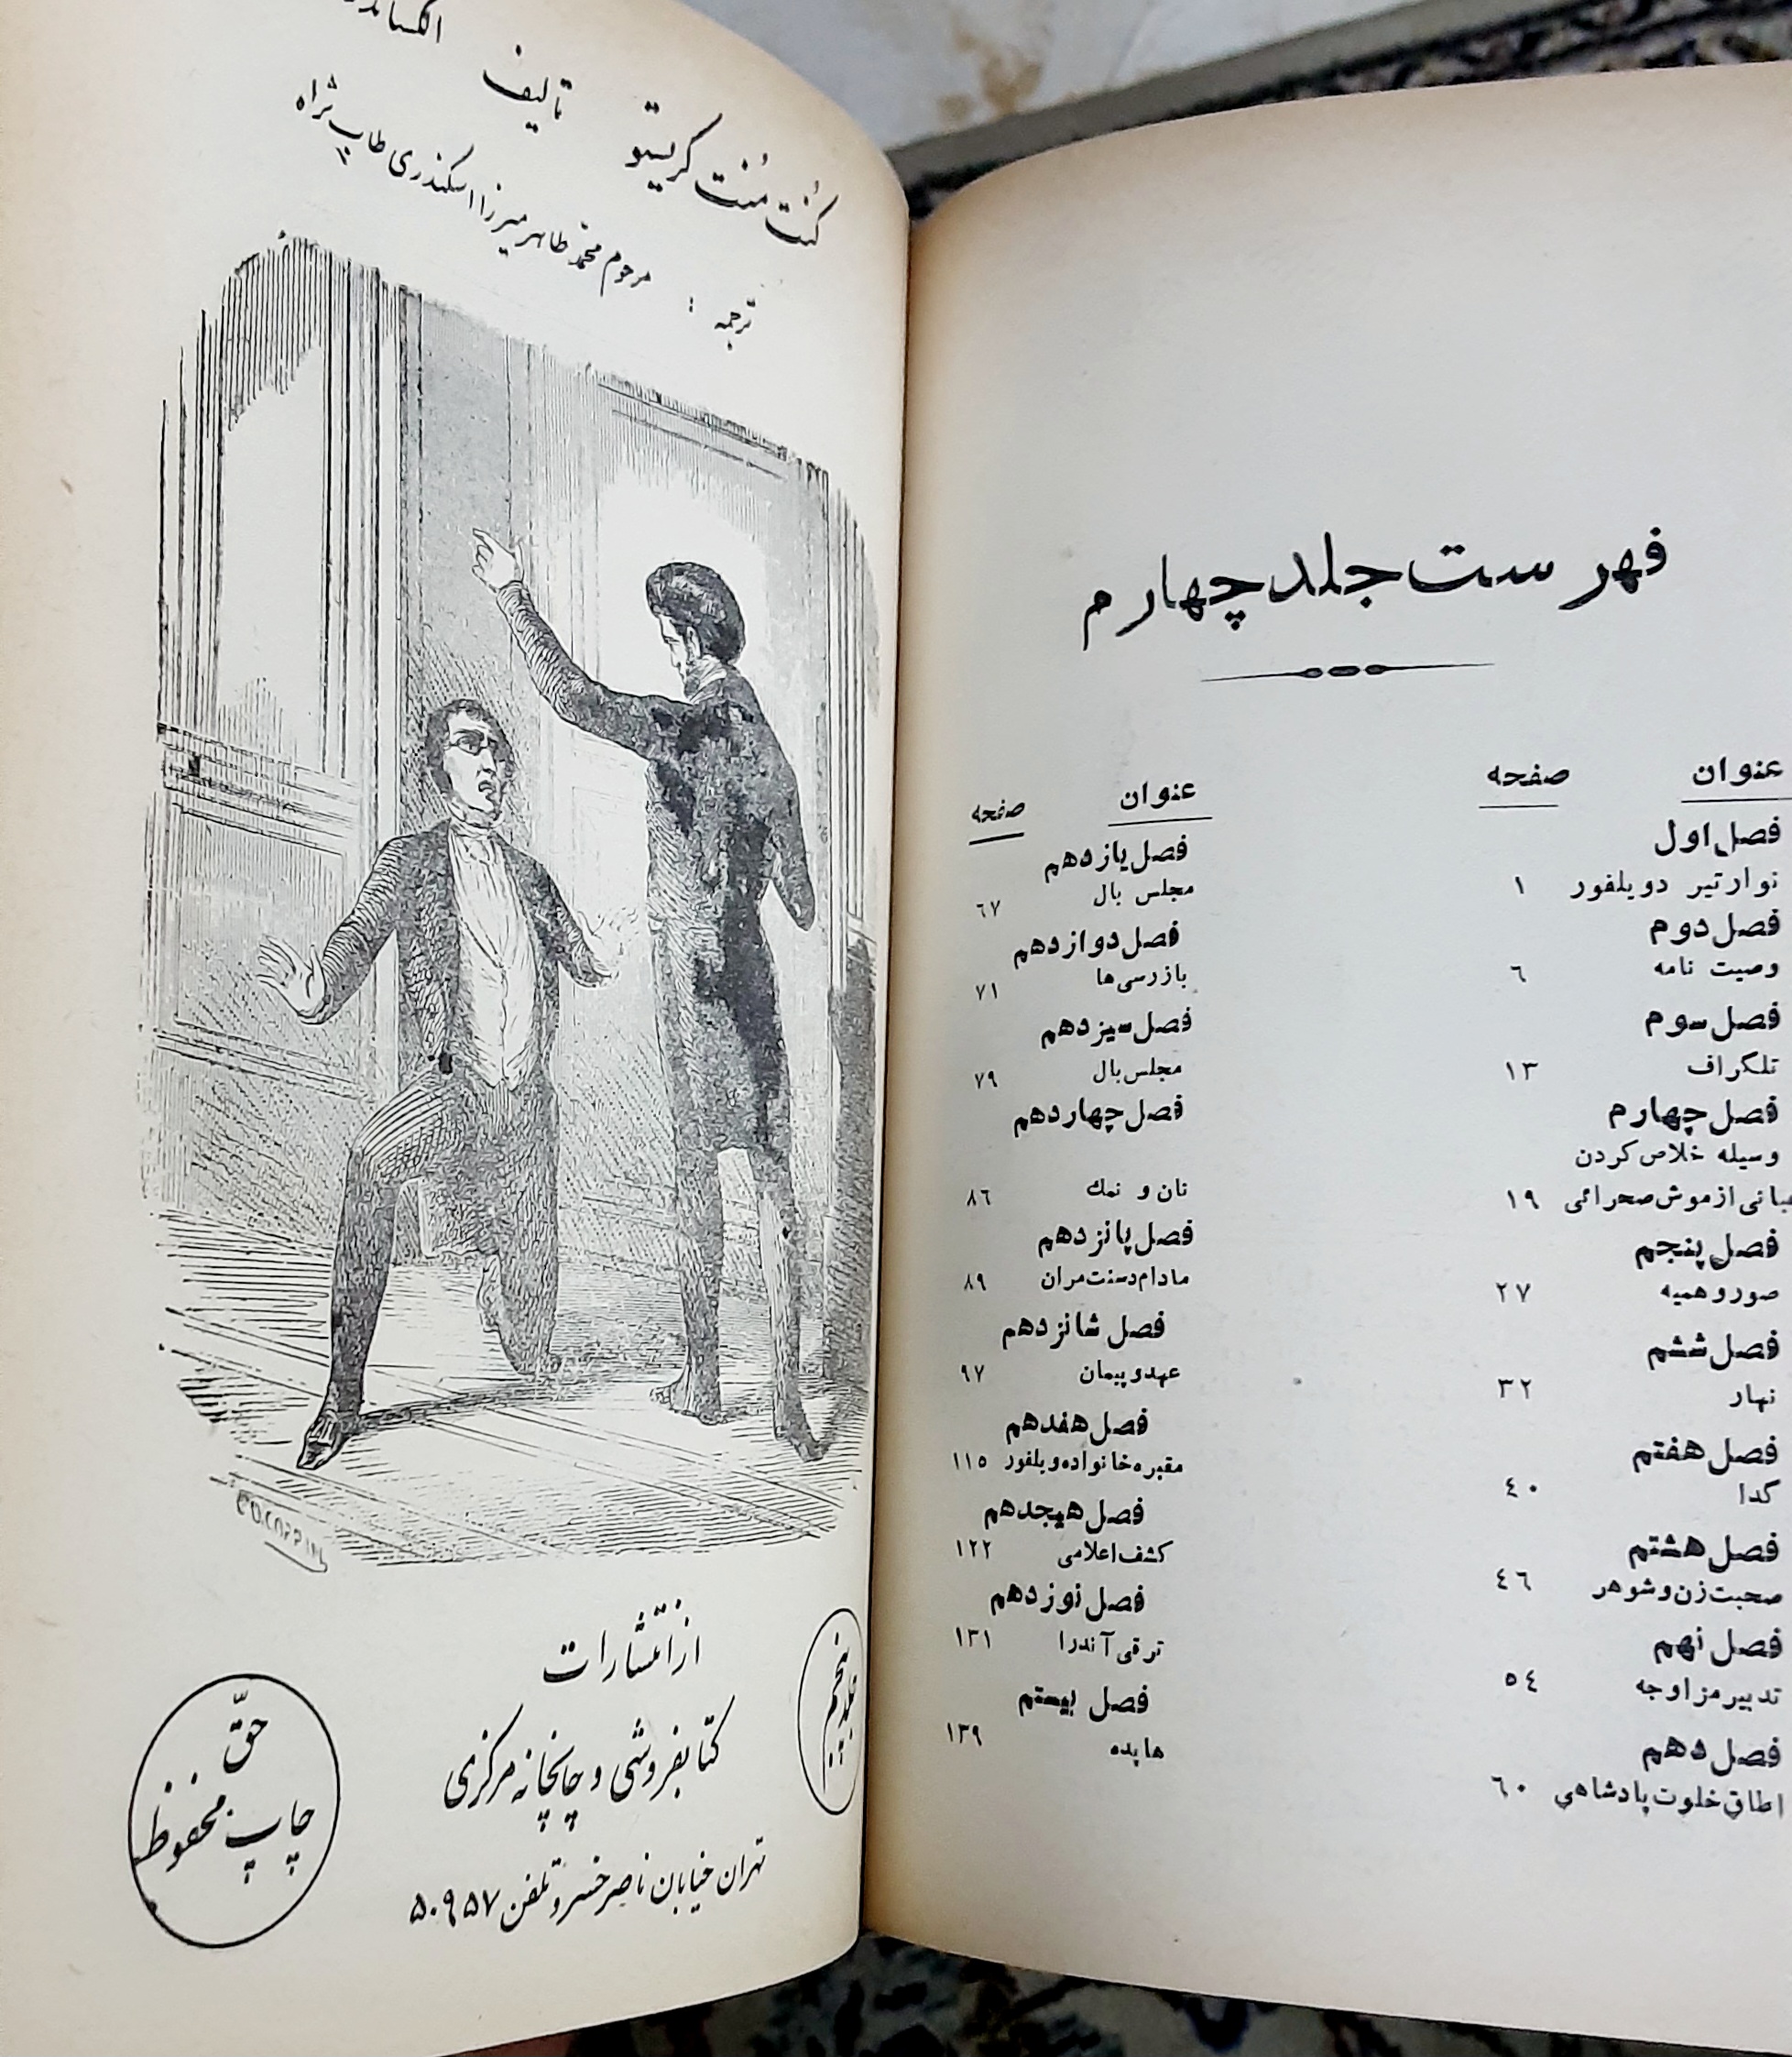 فهرست جلد چهارم
عنوان صفحه
فصل اول
نوارتیر دویلفور ۱
فصل دوم
وصیت نامه ۶
فصل سوم
تلگراف ۱۳
فصل چهارم
وسیله خلاص کردن
از موش صحرائی ۱۹
فصل پنجم
صور وهمیه ۲۷
فصل ششم
نهار ۳۲
فصل هفتم
گدا ۴۰
فصل هشتم
صحبت زن و شوهر ۴۶
فصل نهم
تدبیر مزاوجه ۵۴
فصل دهم
اطاق خلوت پادشاهی ۶۰
عنوان صفحه
فصل یازدهم
مجلس بال ۶۷
فصل دوازدهم
بازرسی‌ها ۷۱
فصل سیزدهم
مجلس بال ۷۹
فصل چهاردهم
نان و نمك ۸۶
فصل پانزدهم
مادام دسنت مران ۸۹
فصل شانزدهم
عهد و پیمان ۹۷
فصل هفدهم
مقبره خانواده ویلفور ۱۱۵
فصل هیجدهم
کشف اعلامی ۱۲۲
فصل نوزدهم
ترقی آندرا ۱۳۱
فصل بیستم
هایده ۱۳۹
کُنت مُنت کریستو تالیف
ترجمه : مرحوم محمد طاهر میرزا اسکندری طاب ثراه
از انتشارات
جلد پنجم
کتابفروشی و چاپخانه مرکزی
تهران خیابان ناصر خسرو تلفن ۵۰۹۵۷
حقّ
چاپ محفوظ